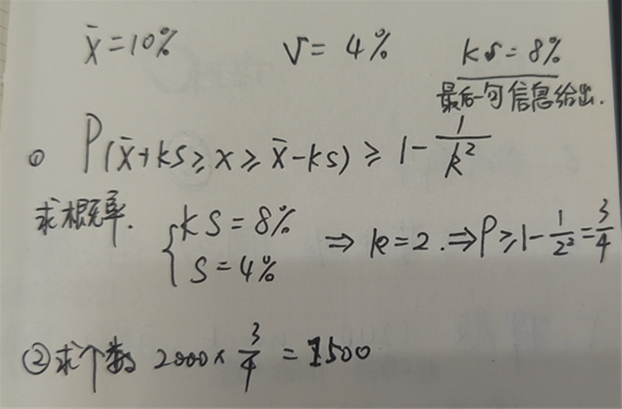 x̄ = 10%   s = 4%   ks = 8%
最后一句信息给出.
① P(x̄+ks ≥ x ≥ x̄-ks) ≥ 1 - 1/k²
求概率. { ks = 8% s = 4% ⇒ k = 2. ⇒ P ≥ 1 - 1/2² = 3/4
② 求个数 2000 × 3/4 = 1500